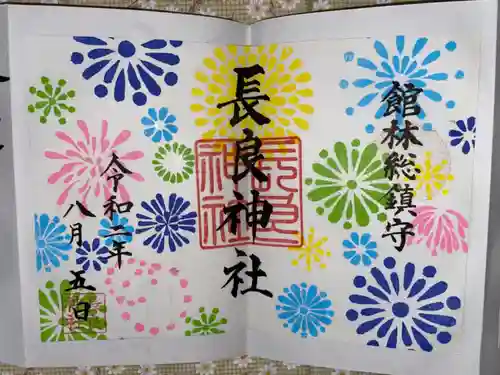 館林総鎮守
長良神社
長良
神社
令和二年
八月五日